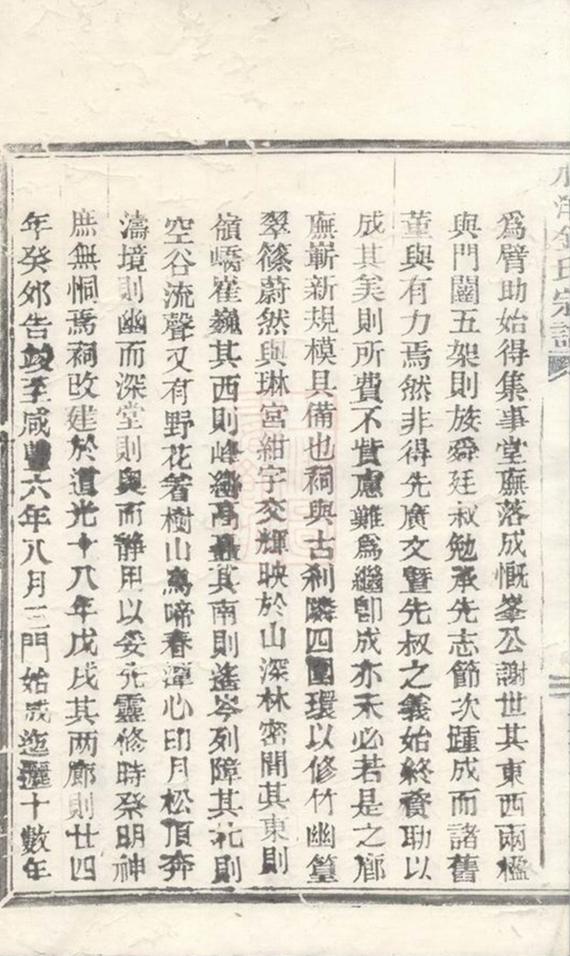 為臂助始得集事堂廡落成慨峯公謝世其東西兩楹
與門闥五架則族舜廷叔勉承先志節次踵成而諸舊
董與有力焉然非得先廣文暨先叔之義始終資助以
成其美則所費不貲慮難為繼卽成亦未必若是之廊
廡嶄新規模具備也祠與古刹隣四圍環以修竹幽篁
翠篠蔚然與琳宮紺宇交輝映於山深林密間其東則
嶺嶠崔巍其西則峰巒高聳其南則遙岑列障其北則
空谷流聲又有野花著樹山鳥啼春潭心印月松頂奔
濤境則幽而深堂則奧而靜用以妥先靈修時祭明神
庶無恫焉祠改建於道光十八年戊戌其两廊則廿四
年癸夘告竣至咸豐六年八月三門始成迤邐十數年
金氏宗譜